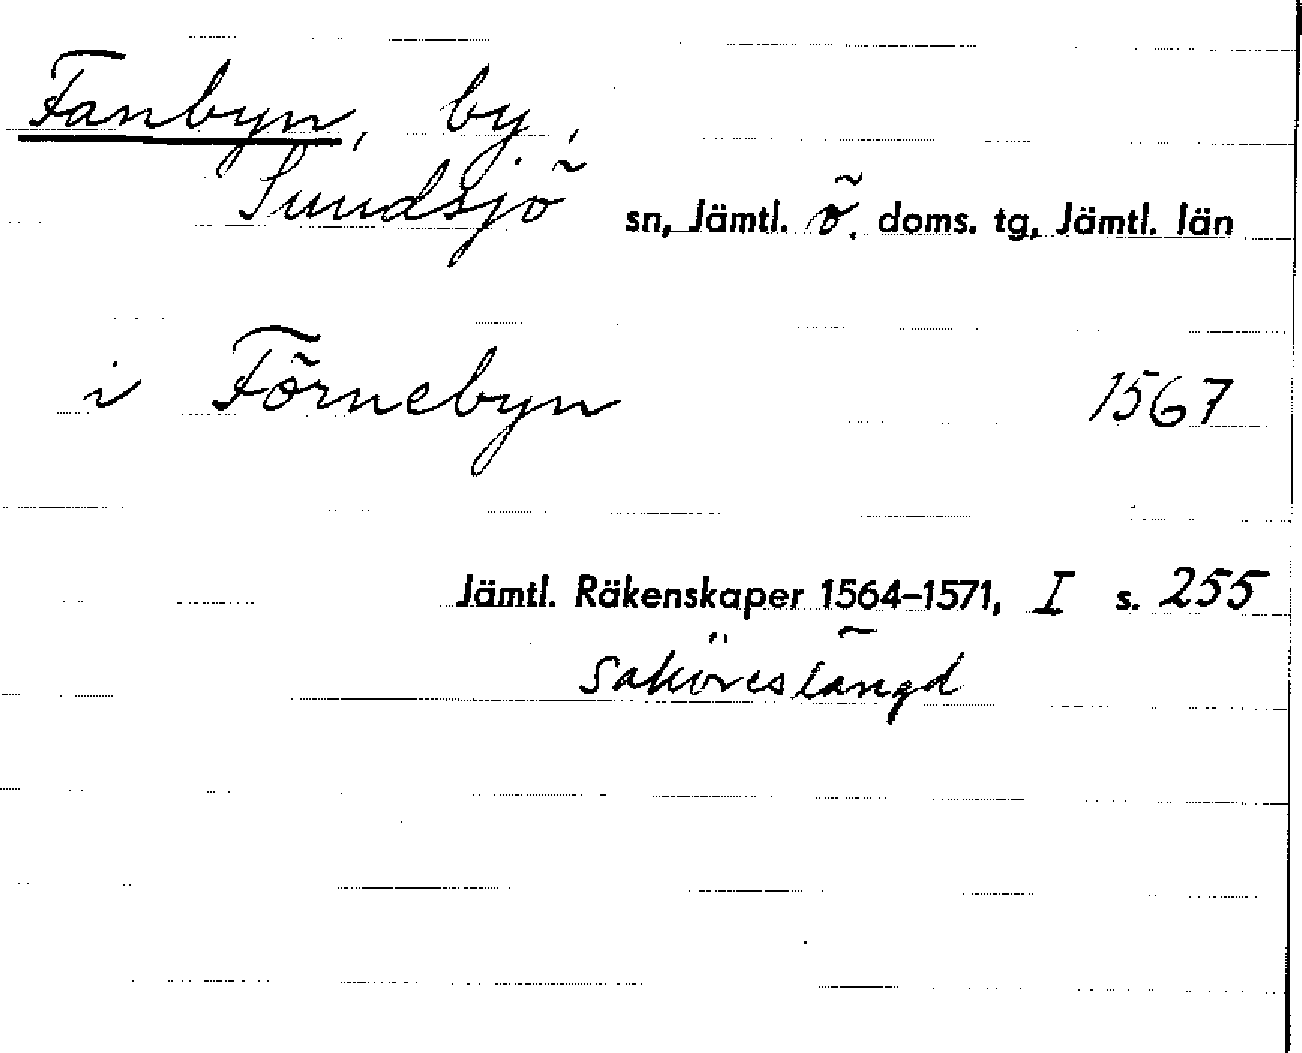 Fanbyn, by,
Sundsjö sn, Jämtl. ö. doms. tg, Jämtl. län
i Förnebyn 1567
Jämtl. Räkenskaper 1564–1571, I s. 255
Saköreslängd